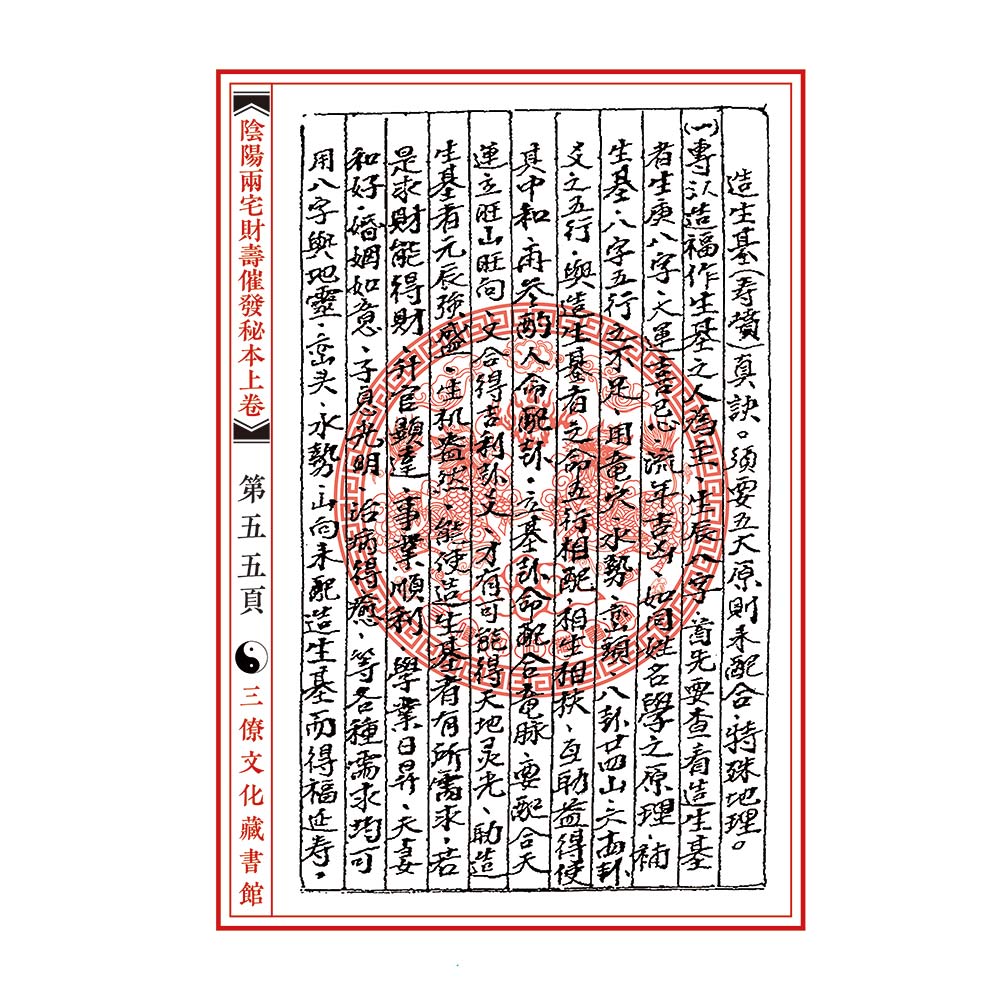 造生基(寿墳)真訣。須要五大原則来配合、特殊地理。
(一)專以造福作生基之人為主、生辰八字、首先要查看造生基
者生庚八字、大運喜忌、流年吉凶、如同姓名學之原理、補
生基、八字五行之不足、用竜穴、水勢、巒頭、八卦廿四山六十四卦
爻之五行、與造生基者之命五行相配、相生相扶、互助益得使
其中和、再参酌人命配卦、立基卦命配合竜脉、要配合天
運立旺山旺向、又合得吉利卦爻、才有可能得天地灵光、助造
生基者元辰強盛、生机盎然、能使造生基者有所需求、若
是求財能得財、升官顯達、事業順利、學業日昇、夫妻
和好、婚姻如意、子息光明、治病得癒、等各種需求均可
用八字與地靈、巒头、水勢、山向来配造生基而得福延寿。
陰陽兩宅財壽催發秘本上卷
第五五頁
三僚文化藏書館